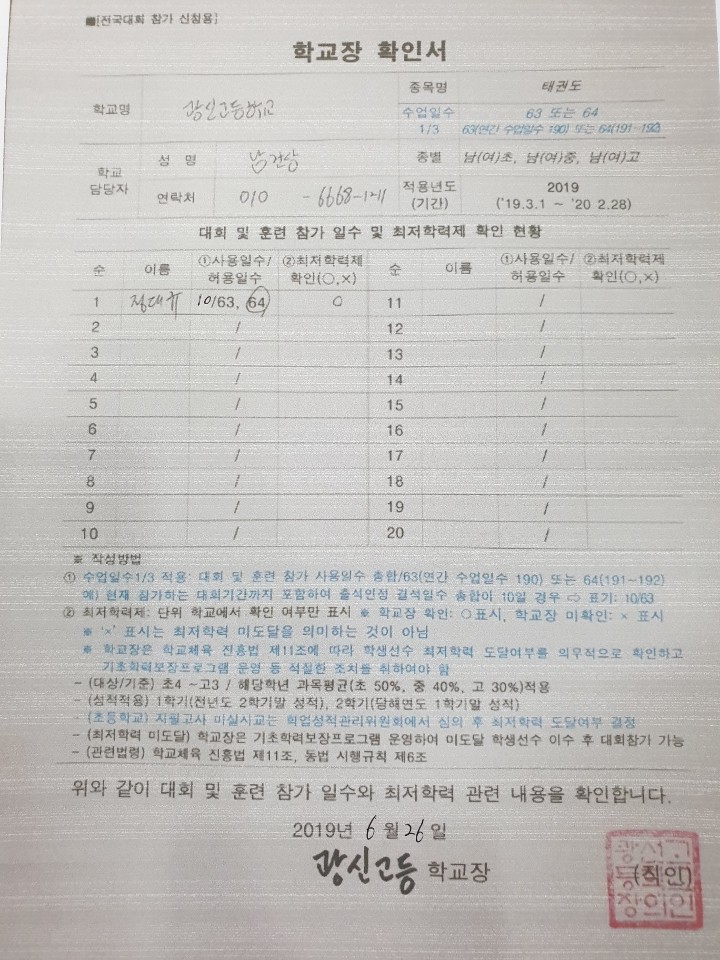 ■[전국대회 참가 신청용]
학교장 확인서
학교명 광신고등학교 종목명 태권도
수업일수 1/3 63 또는 64
63(연간 수업일수 190) 또는 64(191~192)
학교 담당자 성 명 남건상 종별 남(여)초, 남(여)중, 남(여)고
연락처 010 -6668-1211 적용년도 (기간) 2019 ('19.3.1 ~ '20 2.28)
대회 및 훈련 참가 일수 및 최저학력제 확인 현황
순 이름 ①사용일수/허용일수 ②최저학력제 확인(○,×) 순 이름 ①사용일수/허용일수 ②최저학력제 확인(○,×)
1 정대규 10/63, 64 ○ 11 /
2 / 12 /
3 / 13 /
4 / 14 /
5 / 15 /
6 / 16 /
7 / 17 /
8 / 18 /
9 / 19 /
10 / 20 /
※ 작성방법
① 수업일수1/3 적용: 대회 및 훈련 참가 사용일수 총합/63(연간 수업일수 190) 또는 64(191~192)
예) 현재 참가하는 대회기간까지 포함하여 출석인정 결석일수 총합이 10일 경우 ⇨ 표기: 10/63
② 최저학력제: 단위 학교에서 확인 여부만 표시 ※ 학교장 확인: ○표시, 학교장 미확인: × 표시
※ '×' 표시는 최저학력 미도달을 의미하는 것이 아님
※ 학교장은 학교체육 진흥법 제11조에 따라 학생선수 최저학력 도달여부를 의무적으로 확인하고
기초학력보장프로그램 운영 등 적절한 조치를 취하여야 함
- (대상/기준) 초4 ~고3 / 해당학년 과목평균(초 50%, 중 40%, 고 30%)적용
- (성적적용) 1학기(전년도 2학기말 성적), 2학기(당해연도 1학기말 성적)
- (초등학교) 지필고사 미실시교는 학업성적관리위원회에서 심의 후 최저학력 도달여부 결정
- (최저학력 미도달) 학교장은 기초학력보장프로그램 운영하여 미도달 학생선수 이수 후 대회참가 가능
- (관련법령) 학교체육 진흥법 제11조, 동법 시행규칙 제6조
위와 같이 대회 및 훈련 참가 일수와 최저학력 관련 내용을 확인합니다.
2019년 6월 26일
광신고등 학교장 (직인)
광신고
등
장의인